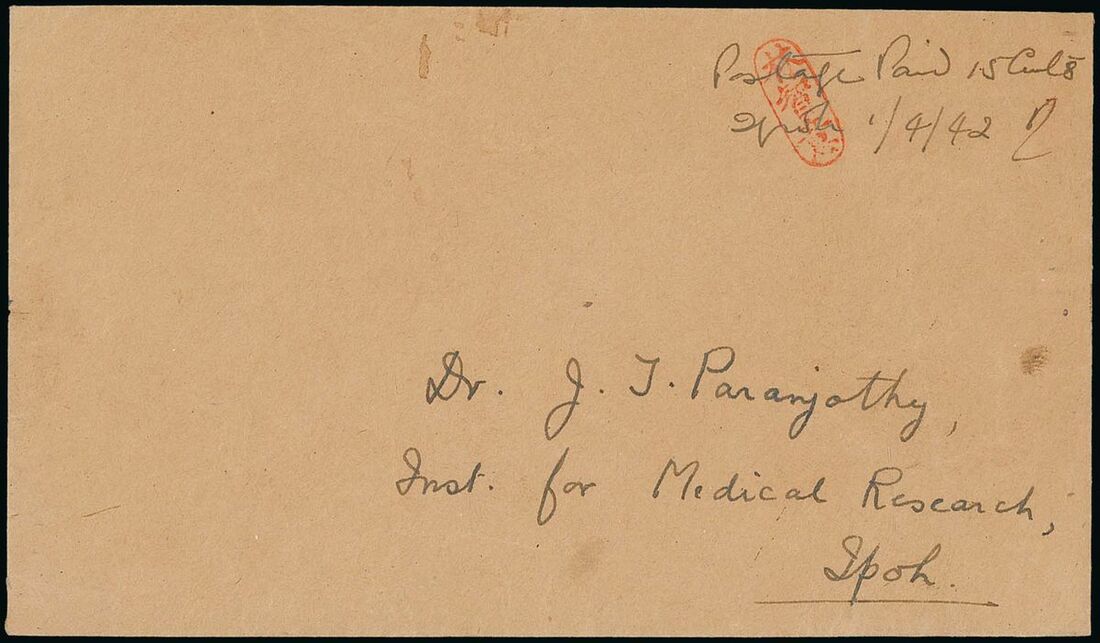 Postage Paid 15 Cents
Ipoh 1/4/42
Dr. J. T. Paranjothy,
Inst. for Medical Research,
Ipoh.